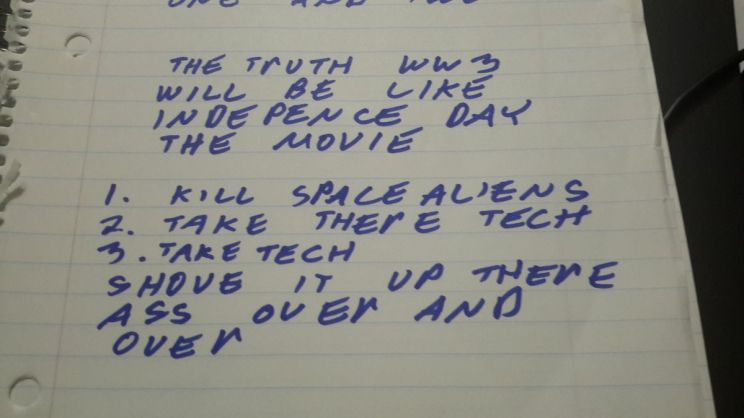 ONE AND TWO
THE TRUTH WW3
WILL BE LIKE
INDEPENCE DAY
THE MOVIE
1. KILL SPACE ALIENS
2. TAKE THERE TECH
3. TAKE TECH
SHOVE IT UP THERE
ASS OVER AND
OVER